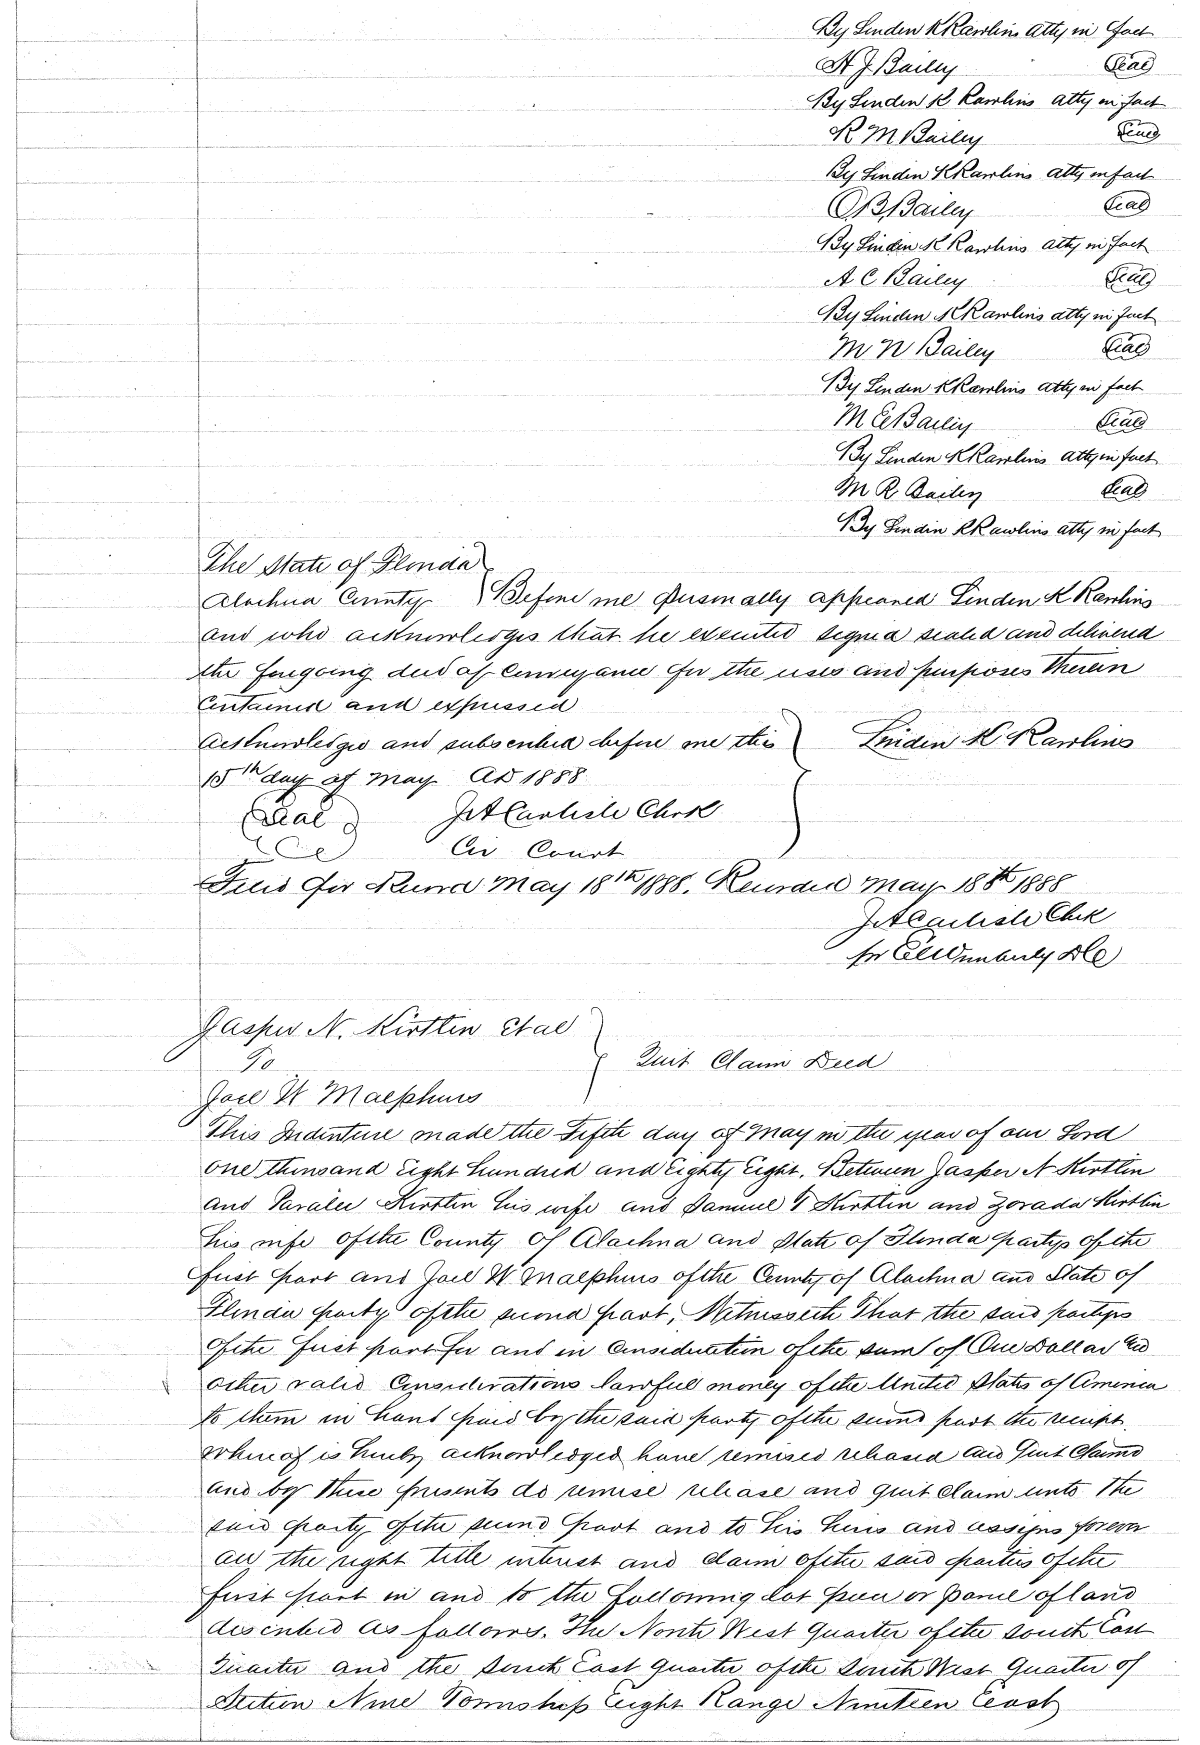 By Linden K Rawlins atty in fact
A J. Bailey Seal
By Linden K Rawlins atty in fact
R M Bailey Seal
By Linden K Rawlins atty in fact
O B Bailey Seal
By Linden K Rawlins atty in fact
A C Bailey Seal
By Linden K Rawlins atty in fact
M N Bailey Seal
By Linden K Rawlins atty in fact
M E Bailey Seal
By Linden K Rawlins atty in fact
M R Bailey Seal
By Linden K Rawlins atty in fact
The State of Florida
Alachua County Before me personally appeared Linden K Rawlins
and who acknowledges that he executed signed sealed and delivered
the foregoing deed of Conveyance for the uses and purposes therein
Contained and expressed
Acknowledged and subscribed before me this Linden K Rawlins
15th day of May AD 1888
Seal J A Carlisle Clerk
Cir Court
Filed for Record May 18th 1888. Recorded May 18th 1888
J A Carlisle Clerk
DC
Jasper N. Kirtlin et al
To Quit Claim Deed
Joel W Malphurs
This Indenture made the Fifth day of May in the year of our Lord
one thousand Eight hundred and Eighty Eight, Between Jasper N Kirtlin
and Paralee Kirtlin his wife and Samuel T Kirtlin and Zorada Kirtlin
his wife of the County of Alachua and State of Florida partys of the
first part and Joel W. Malphurs of the County of Alachua and State of
Florida party of the second part, Witnesseth That the said partys
of the first part for and in Consideration of the sum of One Dollar and
other valid Considerations lawful money of the United States of America
to them in hand paid by the said party of the second part the receipt
whereof is hereby acknowledged have remised released and Quit Claimed
and by these presents do remise release and quit claim unto the
said party of the second part and to his heirs and assigns forever
all the right title interest and claim of the said parties of the
first part in and to the following lot piece or parcel of land
described as follows. The North West Quarter of the South East
Quarter and the South East Quarter of the South West Quarter of
Section Nine Township Eight Range Nineteen East